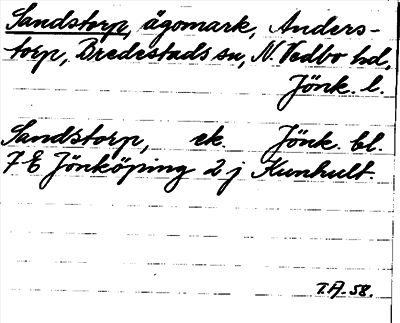 Sandstorp, ägomark, Anders-
torp, Bredestads sn, N. Vedbo hd,
Jönk. l.
Sandstorp, ek. Jönk. bl.
7 E Jönköping 2 j Kunhult.
T.A-58.